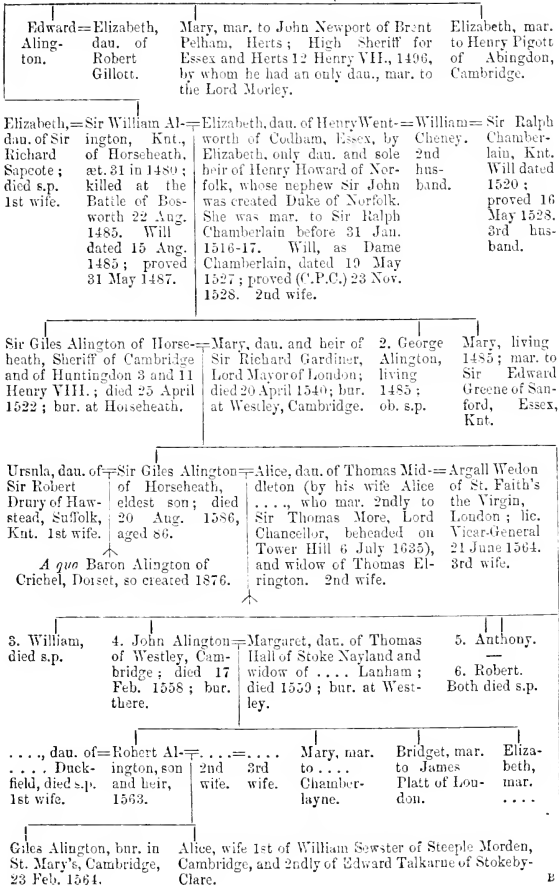 Edward=Elizabeth,
Aling- dau. of
ton. Robert
Gillott.
Mary, mar. to John Newport of Brent
Pelham, Herts; High Sheriff for
Essex and Herts 12 Henry VII., 1496,
by whom he had an only dau., mar. to
the Lord Morley.
Elizabeth, mar.
to Henry Pigott
of Abingdon,
Cambridge.
Elizabeth,=
dau. of Sir
Richard
Sapcote;
died s.p.
1st wife.
Sir William Al-
ington, Knt.,
of Horseheath,
æt. 31 in 1480;
killed at the
Battle of Bos-
worth 22 Aug.
1485. Will
dated 15 Aug.
1485; proved
31 May 1487.
=Elizabeth, dau. of Henry Went-
worth of Codham, Essex, by
Elizabeth, only dau. and sole
heir of Henry Howard of Nor-
folk, whose nephew Sir John
was created Duke of Norfolk.
She was mar. to Sir Ralph
Chamberlain before 31 Jan.
1516-17. Will, as Dame
Chamberlain, dated 19 May
1527; proved (C.P.C.) 23 Nov.
1528. 2nd wife.
=William=
Cheney.
2nd
hus-
band.
Sir Ralph
Chamber-
lain, Knt.
Will dated
1520;
proved 16
May 1528.
3rd hus-
band.
Sir Giles Alington of Horse-
heath, Sheriff of Cambridge
and of Huntingdon 3 and 11
Henry VIII.; died 25 April
1522; bur. at Horseheath.
=Mary, dau. and heir of
Sir Richard Gardiner,
Lord Mayor of London;
died 20 April 1540; bur.
at Westley, Cambridge.
2. George
Alington,
living
1485;
ob. s.p.
Mary, living
1485; mar. to
Sir Edward
Greene of San-
ford, Essex,
Knt.
Ursula, dau. of
Sir Robert
Drury of Haw-
stead, Suffolk,
Knt. 1st wife.
=Sir Giles Alington
of Horseheath,
eldest son; died
20 Aug. 1586,
aged 86.
A quo Baron Alington of
Crichel, Dorset, so created 1876.
=Alice, dau. of Thomas Mid-
dleton (by his wife Alice
...., who mar. 2ndly to
Sir Thomas More, Lord
Chancellor, beheaded on
Tower Hill 6 July 1635),
and widow of Thomas El-
rington. 2nd wife.
=Argall Wedon
of St. Faith's
the Virgin,
London; lic.
Vicar-General
21 June 1564.
3rd wife.
3. William,
died s.p.
4. John Alington
of Westley, Cam-
bridge; died 17
Feb. 1558; bur.
there.
=Margaret, dau. of Thomas
Hall of Stoke Nayland and
widow of .... Lanham;
died 1559; bur. at West-
ley.
5. Anthony.
—
6. Robert.
Both died s.p.
...., dau. of
.... Duck-
field, died s.p.
1st wife.
=Robert Al-
ington, son
and heir,
1563.
=....
2nd
wife.
=....
3rd
wife.
Mary, mar.
to ....
Chamber-
layne.
Bridget, mar.
to James
Platt of Lon-
don.
Eliza-
beth,
mar.
....
Giles Alington, bur. in
St. Mary's, Cambridge,
23 Feb. 1564.
Alice, wife 1st of William Sewster of Steeple Morden,
Cambridge, and 2ndly of Edward Talkarne of Stokeby-
Clare.
B